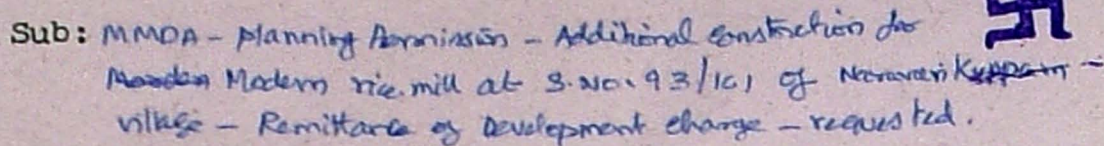 Sub: MMDA - Planning Permission - Additional Construction for
Modern rice mill at S.No. 93/1C1 of Naravari Kuppam -
village - Remittance of Development charge - requested.